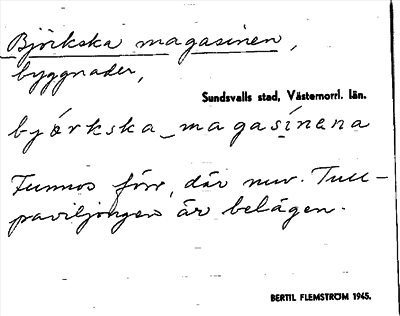 Björkska magasinen,
byggnader,
Sundsvalls stad, Västernorrl. län.
björkska_magasínena
Funnos förr, där nuv. Tull-
paviljongen är belägen.
BERTIL FLEMSTRÖM 1945.